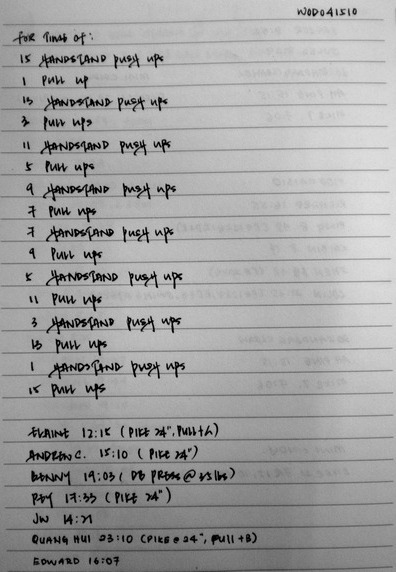 WOD041510
FOR TIME OF:
15 HANDSTAND PUSH UPS
1 PULL UP
13 HANDSTAND PUSH UPS
3 PULL UPS
11 HANDSTAND PUSH UPS
5 PULL UPS
9 HANDSTAND PUSH UPS
7 PULL UPS
7 HANDSTAND PUSH UPS
9 PULL UPS
5 HANDSTAND PUSH UPS
11 PULL UPS
3 HANDSTAND PUSH UPS
13 PULL UPS
1 HANDSTAND PUSH UPS
15 PULL UPS
ELAINE 12:15 (PIKE 24", PULL+L)
ANDREW C. 15:10 (PIKE 24")
BENNY 19:03 (DB PRESS @ 35lbs)
REY 17:33 (PIKE 24")
JW 14:21
QUANG HUI 23:10 (PIKE @ 24", PULL +B)
EDWARD 16:07